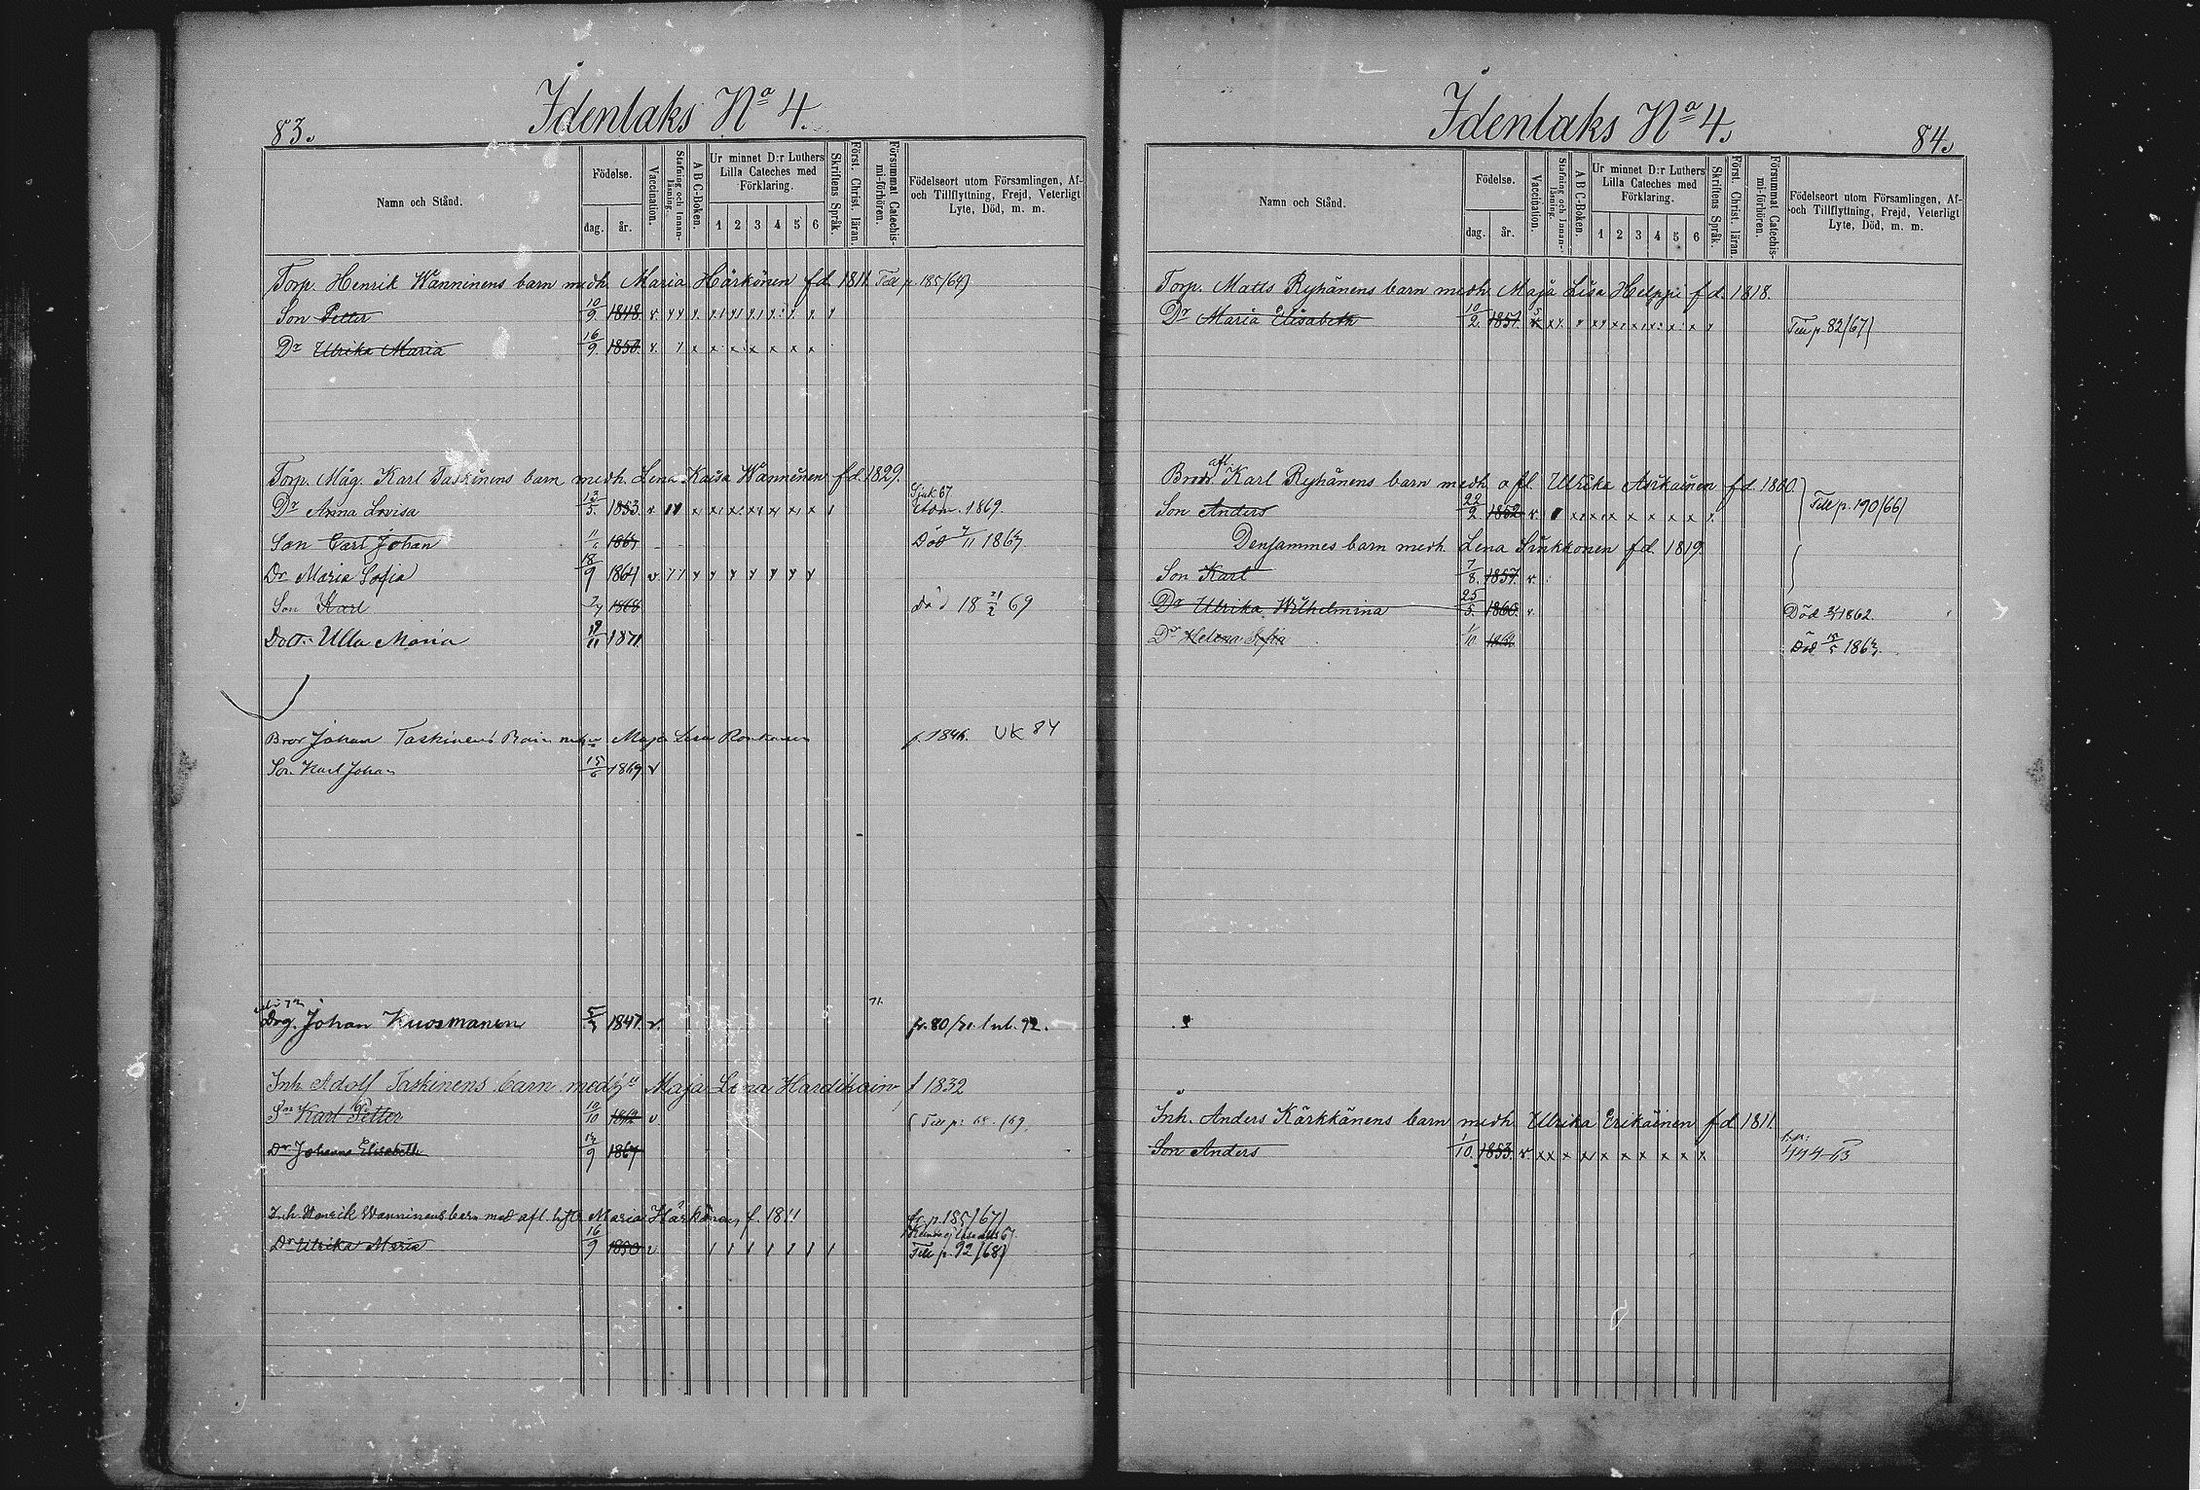 Idenlaks No 4.
83.
Namn och Stånd.
Födelse.
dag.
år.
Vaccination.
Stafning och Innan-läsning.
A B C-Boken.
Ur minnet D:r Luthers
Lilla Cateches med
Förklaring.
1 2 3 4 5 6
Skriftens Språk.
Först. Christ. läran.
Försummat Catechis-mi-förhören.
Födelseort utom Församlingen, Af-
och Tillflyttning, Frejd, Veterligt
Lyte, Död, m. m.
Torp. Henrik Wänninens barn medh. Maria Härkönen f.d. 1811. Till p. 185/64)
Son Petter 10/9 1848. v.
Dr Ulrika Maria 16/9. 1850. v.
Torp. Måg. Karl Taskinens barn medh. Lena Kaisa Wänninen f.d. 1829.
Sjuk 67
Dr Anna Lovisa 13/5. 1853. v 1869.
Son Carl Johan Död 1867
Dr Maria Sofia 18/9 1864 v
Son Karl 1868 död 18 21/2 69
Dottr Ulla Maria 19/11 1871
Bror Johan Taskinens Barn Maja Lisa f. 1846. UK 84
Son Karl Johan 15/6 1869 v
Drg. Johan Kuosmanen 1847. v.
Inh. Adolf Taskinens barn med Maja Lena f 1832
Sn Karl Petter 10/10 v
Dr Johanna Elisabeth 1867
Inh. Henrik Wänninens barn med afl. Maria Härkönen f. 1811 fr. p. 185/67)
Dr Ulrika Maria 16/9 1850 v Till p. 92/68)
Idenlaks No 4.
84.
Namn och Stånd.
Födelse.
dag.
år.
Vaccination.
Stafning och Innan-läsning.
A B C-Boken.
Ur minnet D:r Luthers
Lilla Cateches med
Förklaring.
1 2 3 4 5 6
Skriftens Språk.
Först. Christ. läran.
Försummat Catechis-mi-förhören.
Födelseort utom Församlingen, Af-
och Tillflyttning, Frejd, Veterligt
Lyte, Död, m. m.
Torp. Matts Ryhänens barn medh. Maja Lisa Helppi f.d. 1818.
Dr Maria Elisabeth 10/2. 1851. Till p. 82/67)
afl.
Karl Ryhänens barn medh. afl. Ulrika Asikainen f.d. 1800.
Son Anders 22/2 1852 v. Till p. 190/66)
Densammes barn medh. Lena Sinkkonen f.d. 1819.
Son Karl 7/8. 1857. v.
Dr Ulrika Wilhelmina 25/5. 1860. v. Död 1862.
Dr Helena Sofia Död
Inh. Anders Kärkkänens barn medh. Ulrika Erikäinen f.d. 1811.
Son Anders 1/10. 1853. v.